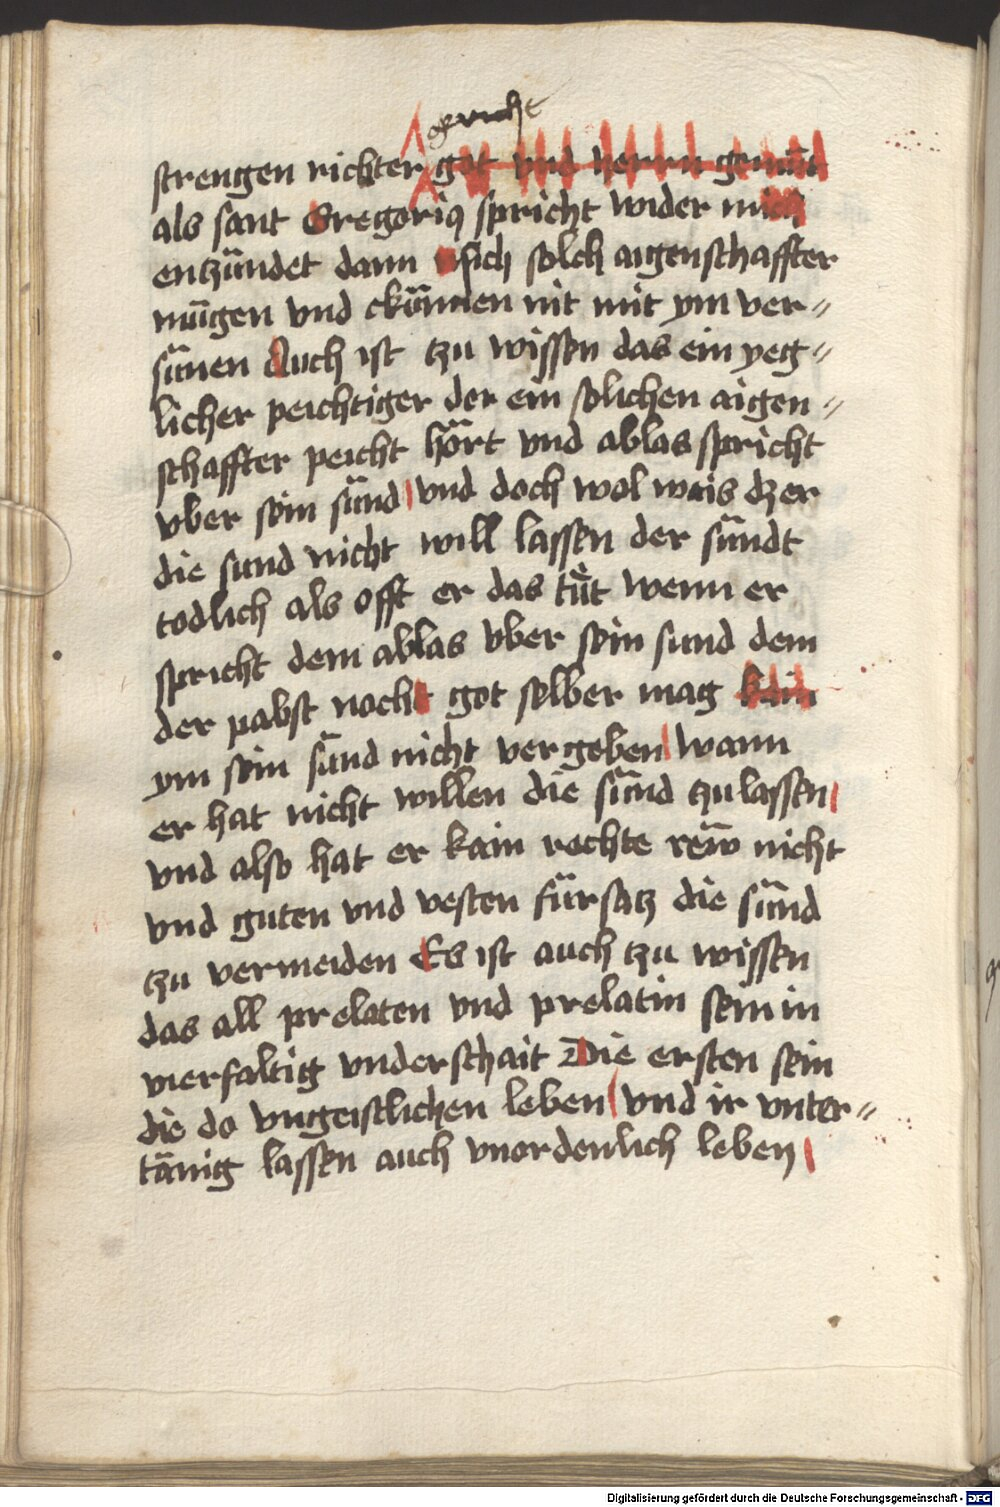 gericht
strengen richter got vnd herrn gemüt
als sant Gregoriꝯ spricht wider mich
entzündet dann sich solch aigenschaffter
mügen vnd ckönnen nit mit ym ver〃
sünen Auch ist tzu wissen das ein yeg〃
licher peichtiger der ein solichen aigen〃
schaffter peicht hört vnd ablas spricht
vber sein sünd vnd doch wol wais dz er
die sund nicht will lassen der sündt
todlich als offt er das tüt wenn er
spricht dem ablas vber sein sund dem
der pabst noch got selber mag kain
ym sein sünd nicht vergeben wann
er hat nicht willen die sünd tzu lassen
vnd also hat er kain rechte rew nicht
vnd guten vnd vesten fürsatz die sünd
tzu vermeiden Es ist auch tzu wissen
das all prelaten vnd prelatin sein in
vierfaltig vnderschait Die ersten sein
die do vngeistlichen leben vnd ir vnter〃
tänig lassen auch vnordenlich leben
Digitalisierung gefördert durch die Deutsche Forschungsgemeinschaft - DFG